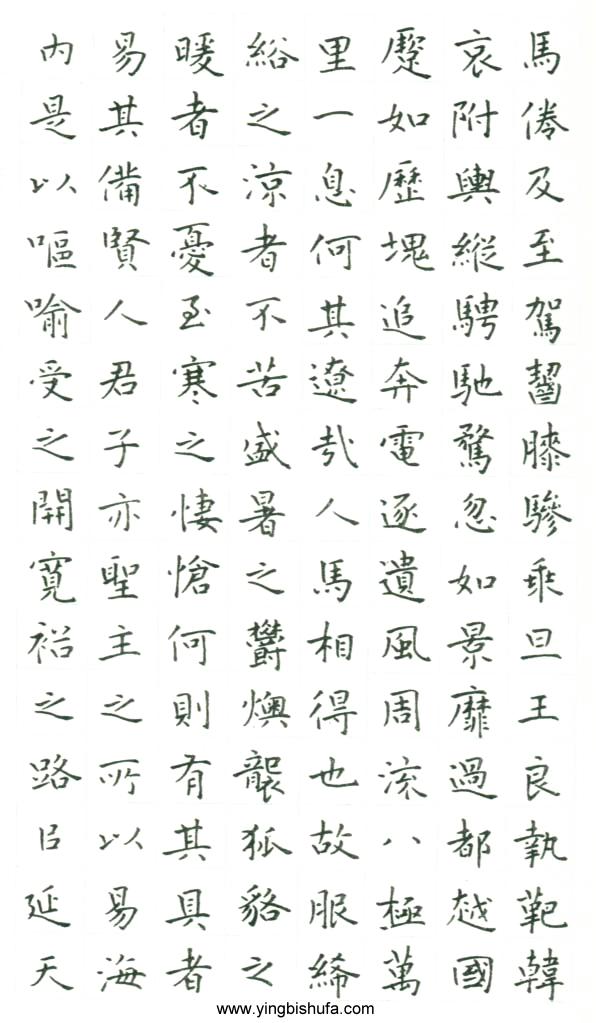 馬倦及至駕齧膝驂乘旦王良執靶韓
哀附輿縱騁馳騖忽如景靡過都越國
蹷如歷塊追奔電逐遺風周流八極萬
里一息何其遼哉人馬相得也故服絺
綌之涼者不苦盛暑之鬱燠襲狐貉之
暖者不憂至寒之悽愴何則有其具者
易其備賢人君子亦聖主之所以易海
内是以嘔喻受之開寬裕之路㠯延天
www.yingbishufa.com